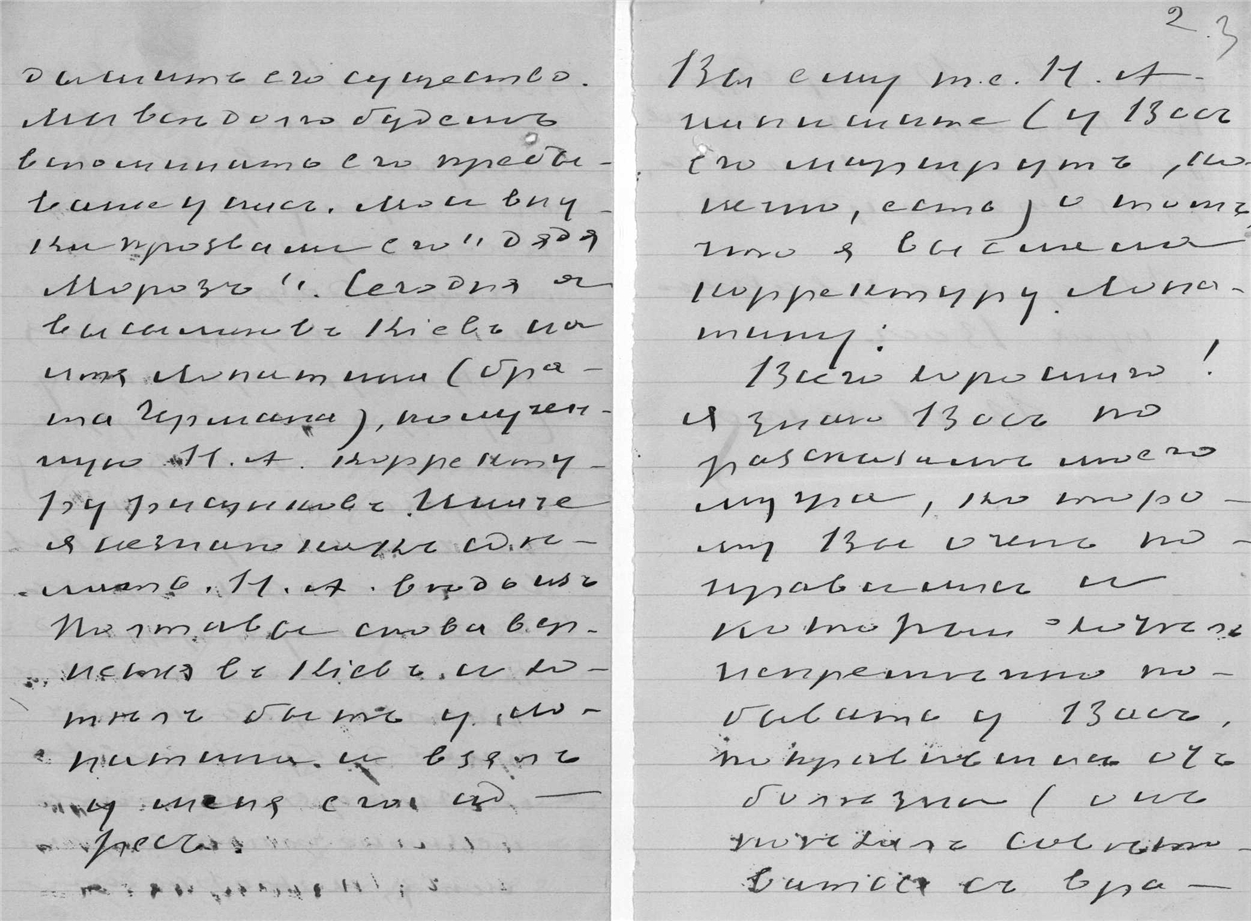 домить его существо.
Мы всѣ долго будемъ
вспоминать его пребы-
ваніе у насъ. Мои вну-
ки прозвали его "дядя
Морозъ". Сегодня я
выслала въ Кіевъ на
имя Лопатина (бра-
та Германа), получен-
ную Н. А. корректу-
ру рисунковъ. Иначе
я не знаю какъ сдѣ-
лать. Н. А. вѣдь изъ
Полтавы снова вер-
нется въ Кіевъ и хо-
тѣлъ быть у Ло-
патина и взялъ
у меня его ад-
ресъ.
2 3
Вы ему т. е. Н. А.
напишите (у Васъ
его маршрутъ, ко-
нечно, есть) о томъ,
что я выслала
корректуру Лопа-
тину.
Всего хорошаго!
Я знаю Васъ по
разсказамъ моего
мужа, которо-
му Вы очень по-
нравились и
который желалъ
непремѣнно по-
бывать у Васъ,
поправившись отъ
болѣзни (онъ
поѣхалъ совѣто-
ваться съ вра-